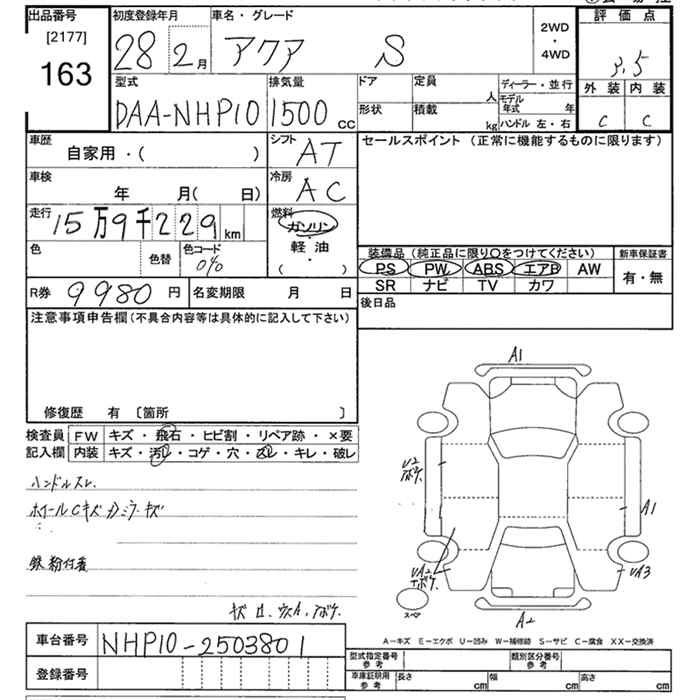 出品番号
[2177]
163
初度登録年月
28 2月
車名・グレード
アクア S
2WD
・
4WD
評価点
3.5
外装 内装
C C
型式
DAA-NHP10
排気量
1500 CC
ドア
形状
定員 人
積載 kg
ディーラー・並行
モデル年式 年
ハンドル 左・右
車歴
自家用・( )
シフト
AT
車検
年 月( 日)
冷房
AC
走行
15万9千229km
燃料
ガソリン
・
軽油
・
( )
色
色替
色コード
040
セールスポイント (正常に機能するものに限ります)
装備品(純正品に限り○をつけてください)
PS PW ABS エアB AW
SR ナビ TV カワ
新車保証書
有・無
R券 9980円
名変期限 月 日
後日品
注意事項申告欄(不具合内容等は具体的に記入して下さい)
修復歴 有 〔箇所 〕
検査員記入欄
FW キズ・飛石・ヒビ割・リペア跡・×要
内装 キズ・汚レ・コゲ・穴・スレ・キレ・破レ
ハンドルスレ
ホイールCキズ カミラーキズ
鉄粉付着
A1
U2
A1
UA2
UA3
スペア
A2
A-キズ E-エクボ U-凹み W-補修跡 S-サビ C-腐食 XX-交換済
車台番号
NHP10-2503801
登録番号
型式指定番号
参考
類別区分番号
参考
車庫証明用
参考
長さ cm
幅 cm
高さ cm